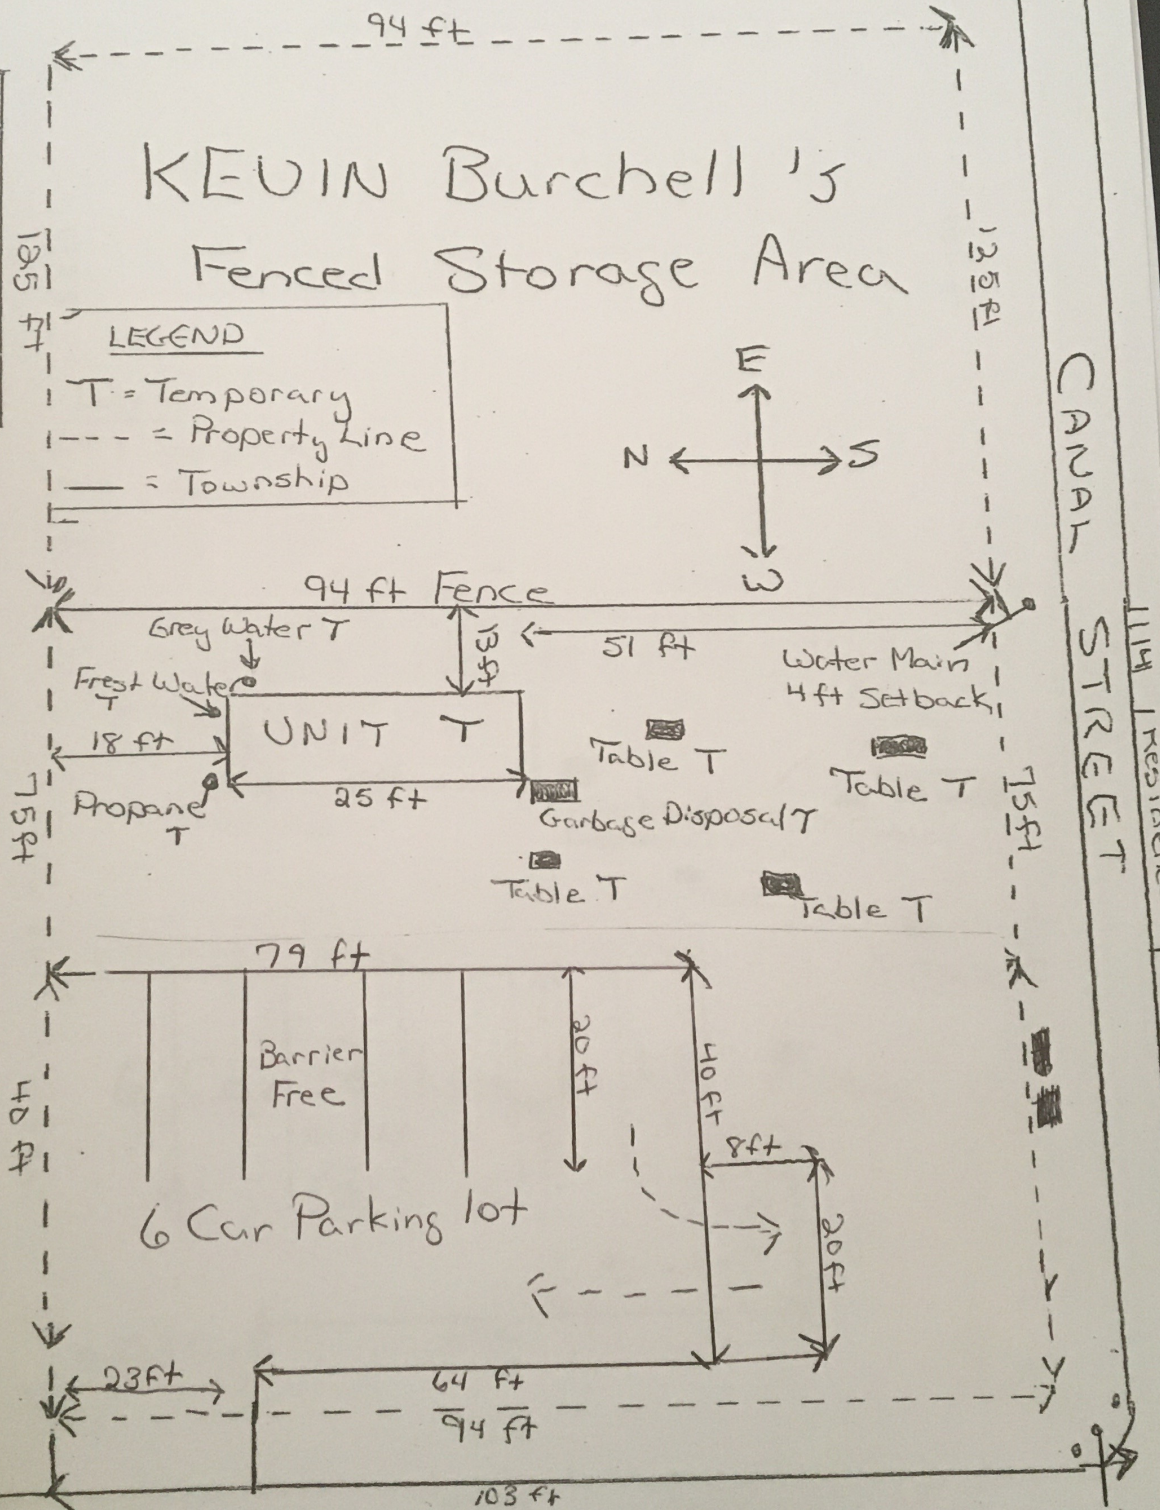 94 ft
KEVIN Burchell's
Fenced Storage Area
125 ft
125 ft
LEGEND
T = Temporary
--- = Property Line
— = Township
E
N
S
W
CANAL STREET
94 ft Fence
Grey Water T
13 ft
51 ft
Water Main
4ft Setback
Fresh Water
T
UNIT T
18 ft
25 ft
Propane
T
Table T
Table T
Garbage Disposal T
Table T
Table T
75 ft
75 ft
1114
79 ft
Barrier
Free
20 ft
40 ft
40 ft
8ft
20 ft
6 Car Parking lot
23ft
64 ft
94 ft
103 ft